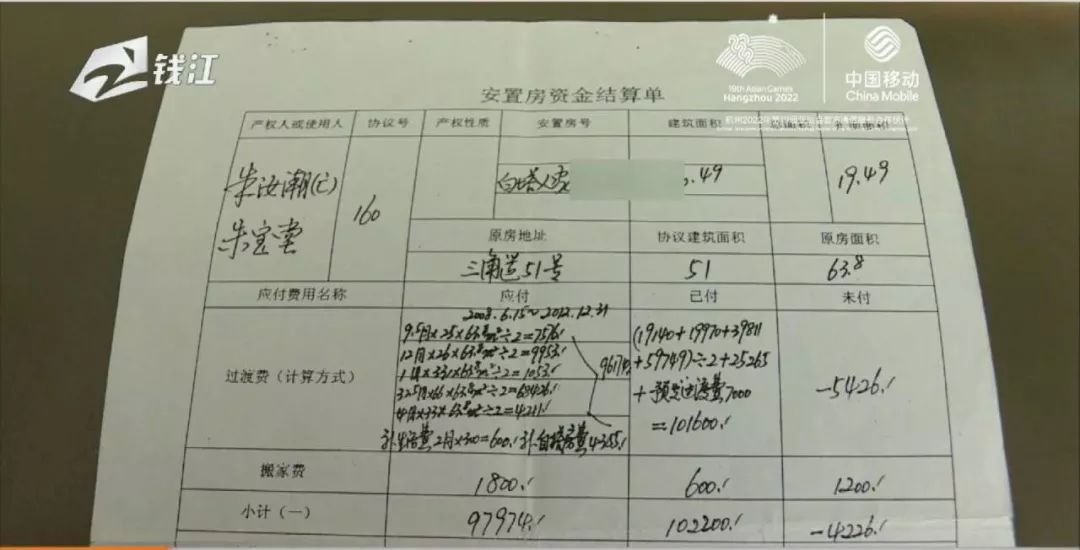 钱江
19th Asian Games
Hangzhou 2022
中国移动
China Mobile
安置房资金结算单
产权人或使用人 协议号 产权性质 安置房号 建筑面积 面积
朱汝潮(亡) 160 白塔人家 .49 19.49
朱宝堂
原房地址 协议建筑面积 原房面积
三角道51号 51 63.8
应付费用名称 应付 已付 未付
2008.6.15~2012.12.31
9.5月×25×63.8m²÷2=7576
12月×26×63.8m²÷2=9953
1月×33×63.8m²÷2=1053
32.5月×66×63.8m²÷2=68426
4月×33×63.8m²÷2=4211
96174
过渡费（计算方式）
补生活费2月×300=600 补自 费4355
(19140+19970+39811
+59749)÷2+25265
+预发过渡费7000
=101600
-5426
搬家费 1800 600 1200
小计（一） 97974 102200 -4226